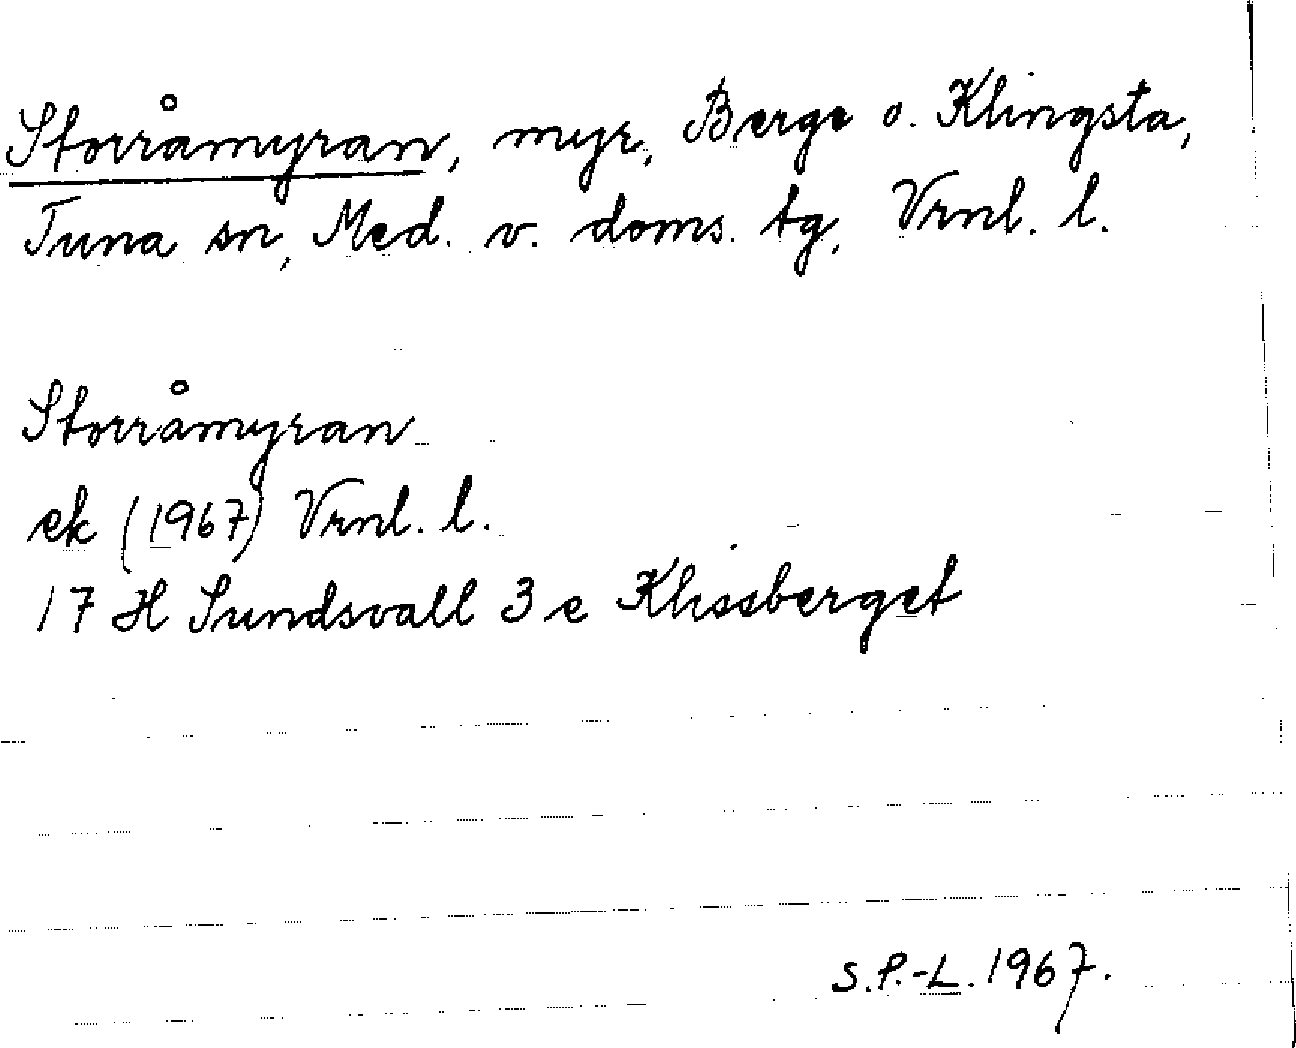 Storråmyran, myr, Berge o. Klingsta,
Tuna sn, Med. v. doms. tg, Vrnl. l.
Storråmyran
ek (1967) Vrnl. l.
17 H Sundsvall 3 e Klissberget
S.P.-L. 1967.